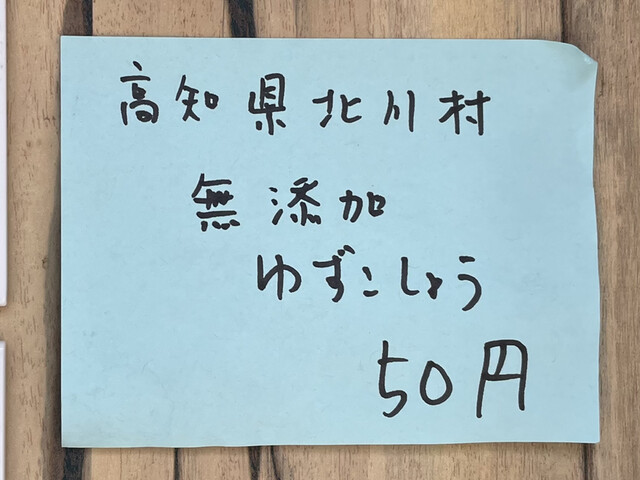 高知県北川村
無添加
ゆずこしょう
50円